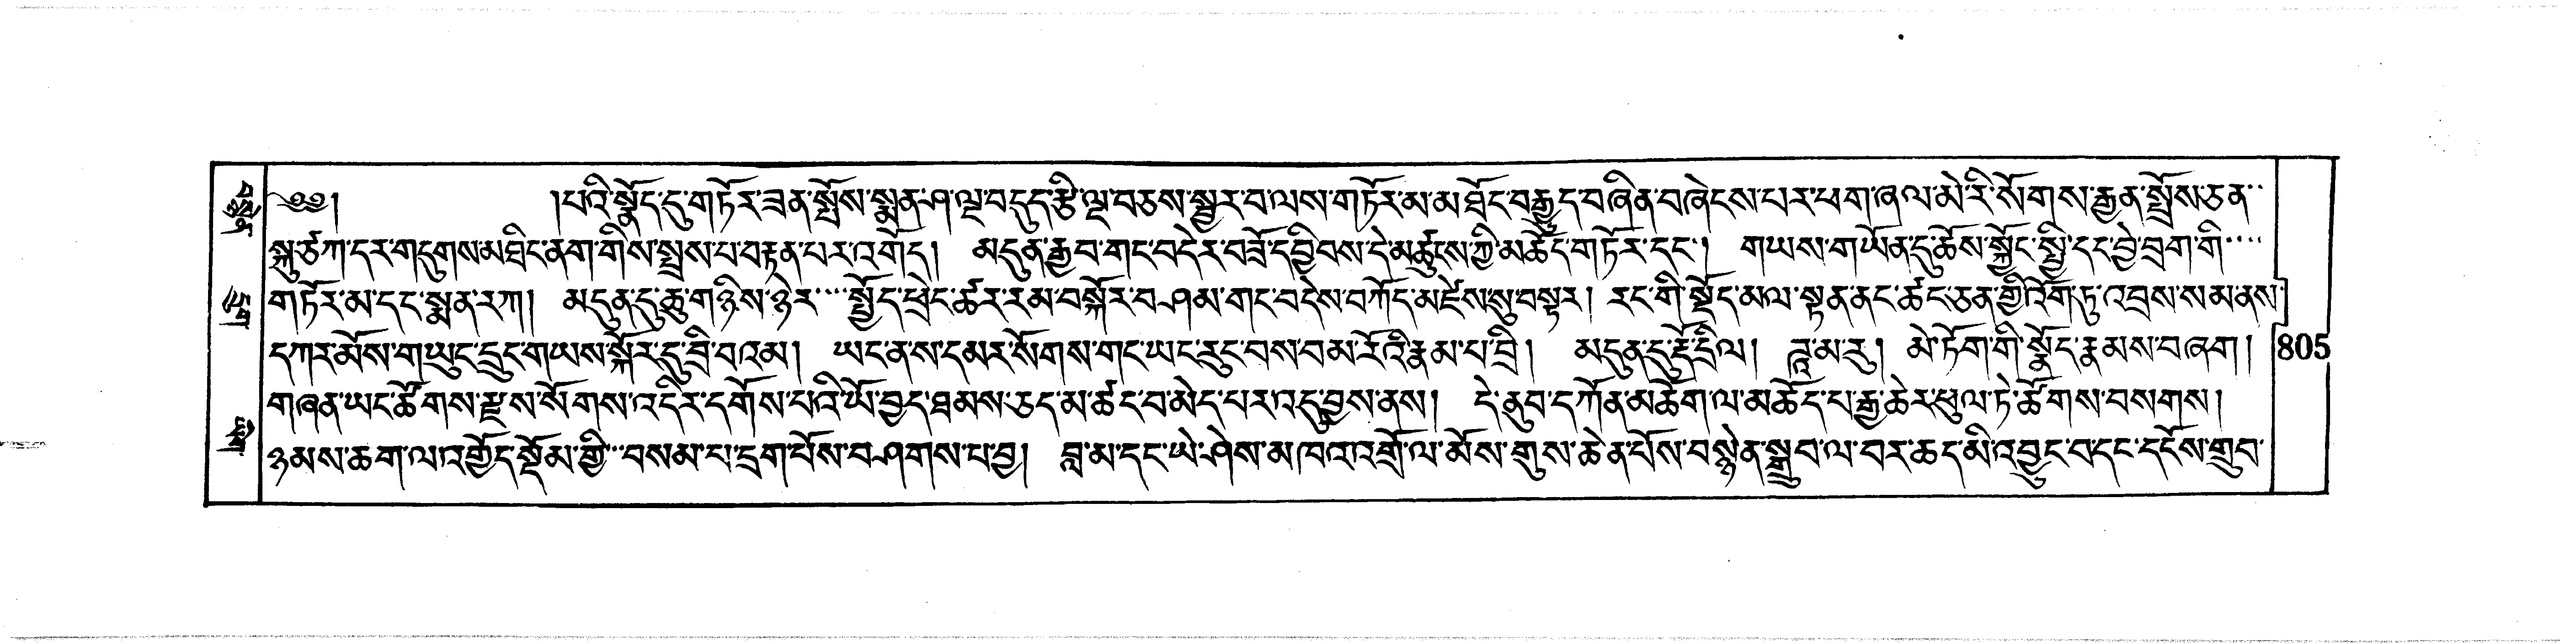 ༄༅། །པའི་སྣོད་དུ་གཏོར་ཟན་སྤོས་སྨན་ཤ་ལྔ་བདུད་རྩི་ལྔ་བཅས་སྦྱར་བ་ལས་གཏོར་མ་མ་ཐོང་བརྒྱུད་བཞིན་བཞེངས་པར་ཕག་ཞལ་མེ་རི་སོགས་རྒྱན་སྤྲོས་ཅན་
སྐུ་ཙཀ་དར་གདུགས་མཐིང་ནག་གིས་སྤྲས་པ་བརྟན་པར་འགོད། མདུན་རྒྱབ་གང་བདེར་བཟོ་དབྱིབས་དེ་མཚུངས་ཀྱི་མཆོད་གཏོར་དང་། གཡས་གཡོན་དུ་ཆོས་སྐྱོང་སྤྱི་དང་བྱེ་བྲག་གི་
གཏོར་མ་དང་སྨན་རཀ། མདུན་དུ་ཆུ་གཉིས་ཉེར་སྤྱོད་ཕྲེང་ཚར་རམ་བསྐོར་བཤམ་གང་བདེས་བཀོད་མཛེས་སུ་བསྟར། རང་གི་སྡོད་མལ་སྟན་ནང་ཚང་ཅན་གྱི་འོག་ཏུ་འབྲས་སམ་ནས་
དཀར་མོས་གཡུང་དྲུང་གཡས་སྐོར་དུ་བྲི་བའམ། ཡང་ན་ས་དམར་སོགས་གང་ཡང་རུང་བས་བམ་རོའི་རྣམ་པ་བྲི། མདུན་དུ་རྡོ་དྲིལ། ཌཱ་མ་རུ། མེ་ཏོག་གི་སྣོད་རྣམས་བཞག །
805
གཞན་ཡང་ཚོགས་རྫས་སོགས་འདིར་དགོས་པའི་ཡོ་བྱད་ཐམས་ཅད་མ་ཚང་བ་མེད་པར་འདུ་བྱས་ནས། དེ་ནུབ་དཀོན་མཆོག་ལ་མཆོད་པ་རྒྱ་ཆེར་ཕུལ་ཏེ་ཚོགས་བསགས།
ཉམས་ཆག་ལ་འགྱོད་སྡོམ་གྱི་བསམ་པ་དྲག་པོས་བཤགས་པ་བྱ། བླ་མ་དང་ཡེ་ཤེས་མཁའ་འགྲོ་ལ་མོས་གུས་ཆེན་པོས་བསྙེན་སྒྲུབ་ལ་བར་ཆད་མི་འབྱུང་བ་དང་དངོས་གྲུབ་